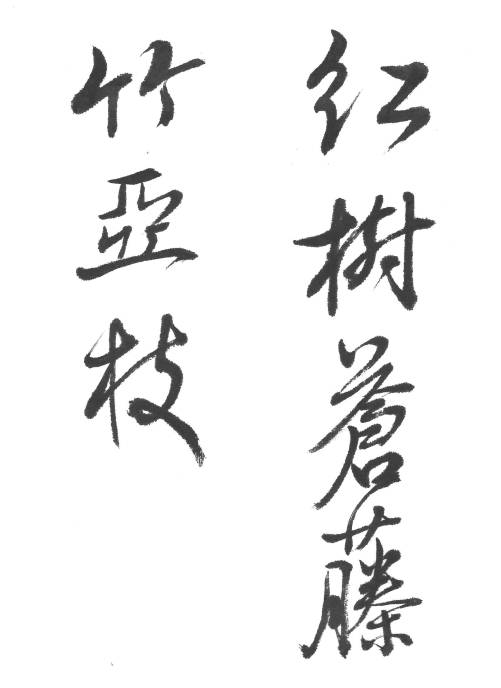 紅樹蒼藤
竹亞枝